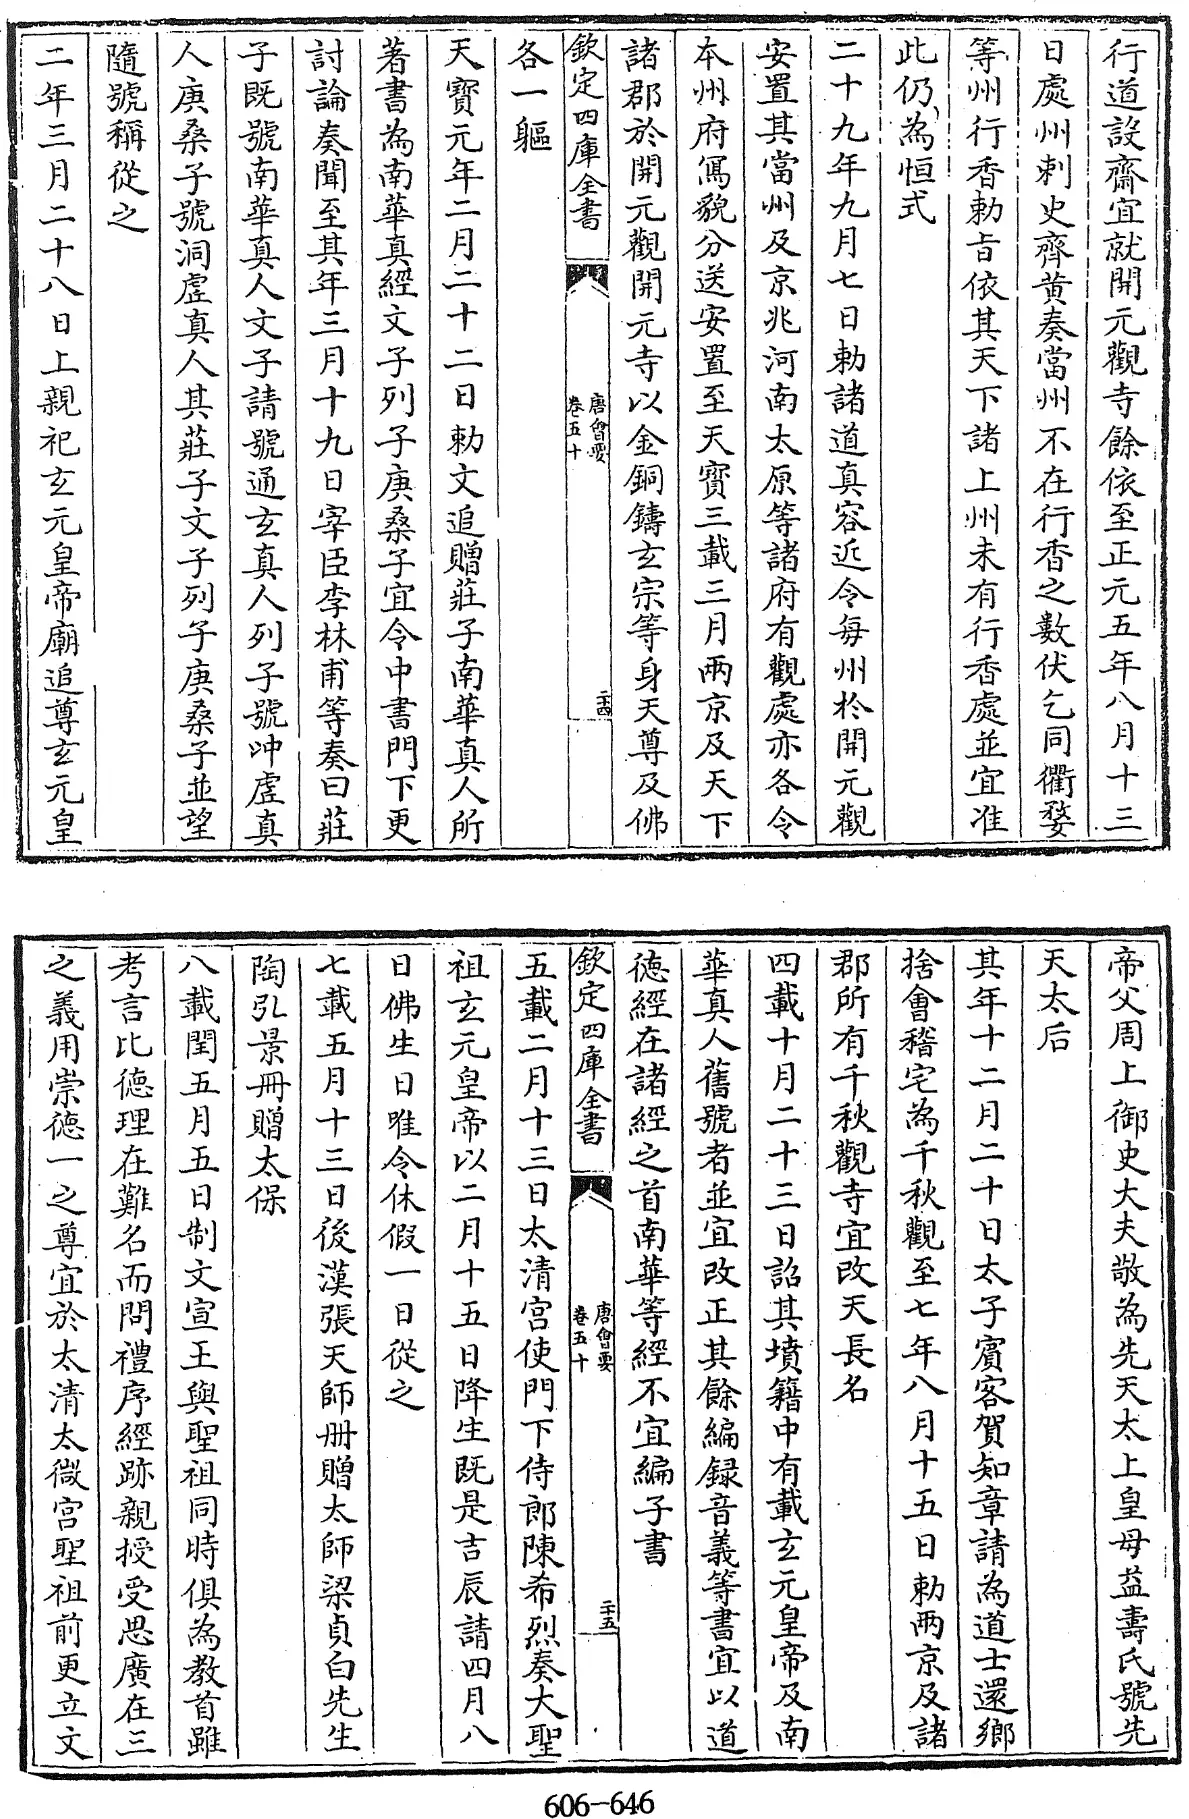 行道設齋宜就開元觀寺餘依至正元五年八月十三
日處州刺史齊黃奏當州不在行香之數伏乞同衢婺
等州行香勅旨依其天下諸上州未有行香處並宜准
此仍為恒式
二十九年九月七日勅諸道真容近令每州於開元觀
安置其當州及京兆河南太原等諸府有觀處亦各令
本州府寫貌分送安置至天寶三載三月兩京及天下
諸郡於開元觀開元寺以金銅鑄玄宗等身天尊及佛
欽定四庫全書
唐會要
卷五十
二十四
各一軀
天寶元年二月二十二日勅文追贈莊子南華真人所
著書為南華真經文子列子庚桑子宜令中書門下更
討論奏聞至其年三月十九日宰臣李林甫等奏曰莊
子既號南華真人文子請號通玄真人列子號冲虛真
人庚桑子號洞虛真人其莊子文子列子庚桑子並望
隨號稱從之
二年三月二十八日上親祀玄元皇帝廟追尊玄元皇
帝父周上御史大夫敬為先天太上皇母益壽氏號先
天太后
其年十二月二十日太子賓客賀知章請為道士還鄉
捨會稽宅為千秋觀至七年八月十五日勅兩京及諸
郡所有千秋觀寺宜改天長名
四載十月二十三日詔其墳籍中有載玄元皇帝及南
華真人舊號者並宜改正其餘編録音義等書宜以道
德經在諸經之首南華等經不宜編子書
欽定四庫全書
唐會要
卷五十
二十五
五載二月十三日太清宮使門下侍郎陳希烈奏大聖
祖玄元皇帝以二月十五日降生既是吉辰請四月八
日佛生日唯令休假一日從之
七載五月十三日後漢張天師册贈太師梁貞白先生
陶弘景册贈太保
八載閏五月五日制文宣王與聖祖同時俱為教首雖
考言比德理在難名而問禮序經跡親授受思廣在三
之義用崇德一之尊宜於太清太微宮聖祖前更立文
606-646